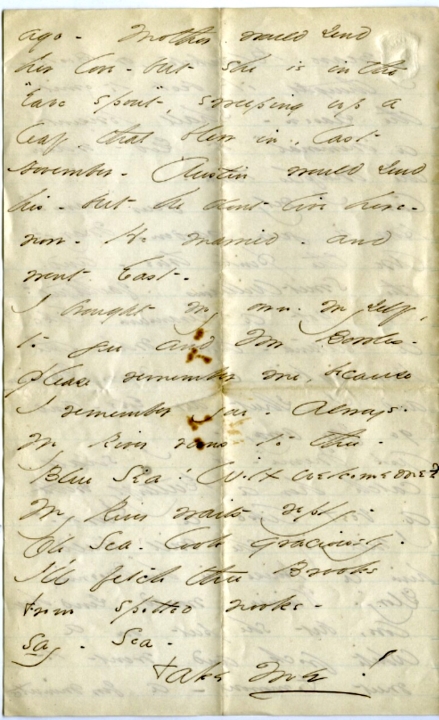 ago - Mother would send
her love - but she is in the
"Eave spout", sweeping up a
leaf, that blew in, last
November - Austin would send
his - but he dont live here -
now - He married - and
went East -
I brought my own, myself,
to you and Mr Bowles -
Please remember me, because
I remember you - Always -
My River runs to thee -
Blue Sea! Wilt welcome me?
My River waits reply -
Oh Sea - look graciously -
I'll fetch thee Brooks
from spotted nooks -
Say - Sea -
Take Me!